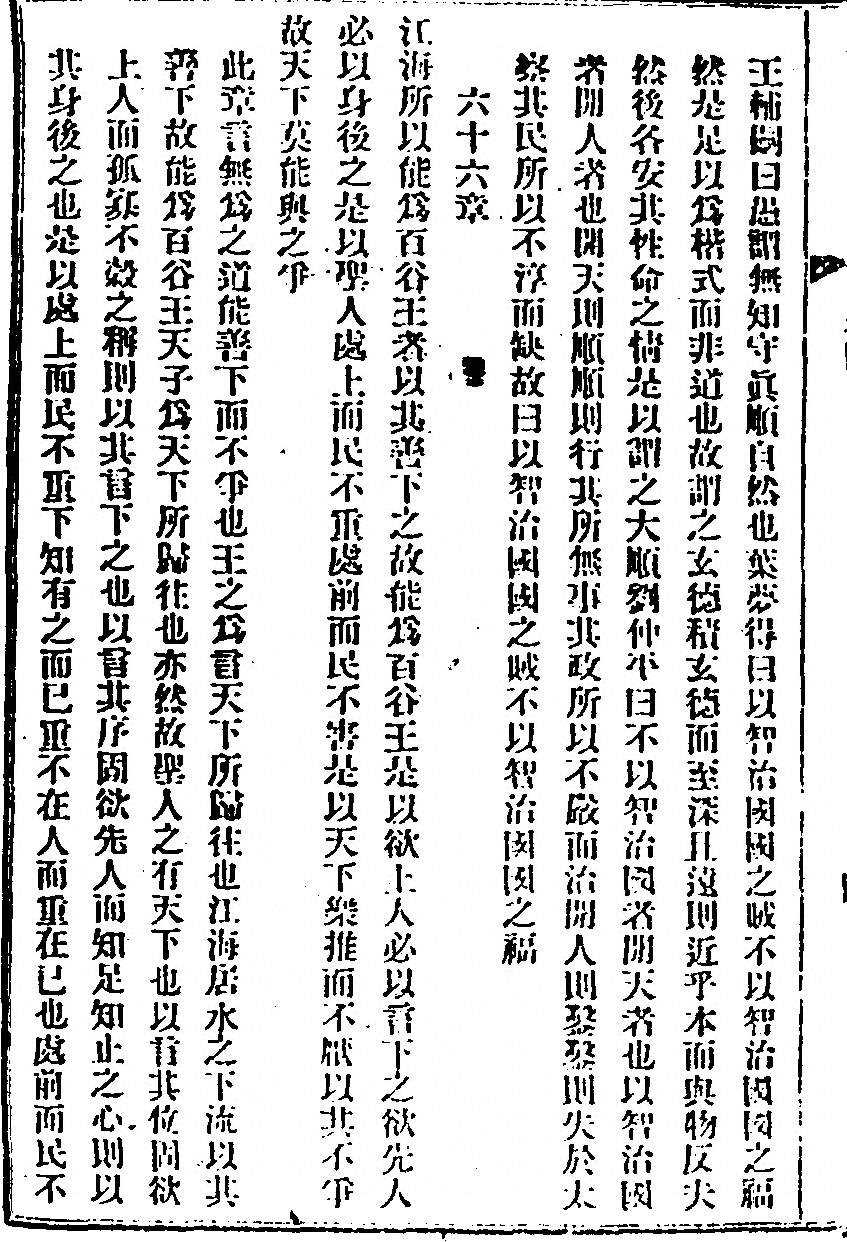 王輔嗣曰愚謂無知守眞順自然也葉夢得曰以智治國國之賊不以智治國國之福
然是足以爲楷式而非道也故謂之玄德積玄德而至深且遠則近乎本而與物反夫
然後各安其性命之情是以謂之大順劉仲平曰不以智治國者開天者也以智治國
者開人者也開天則順順則行其所無事其政所以不嚴而治開人則鑿鑿則失於太
察其民所以不淳而缺故曰以智治國國之賊不以智治國國之福
六十六章
江海所以能爲百谷王者以其善下之故能爲百谷王是以欲上人必以言下之欲先人
必以身後之是以聖人處上而民不重處前而民不害是以天下樂推而不厭以其不爭
故天下莫能與之爭
此章言無爲之道能善下而不爭也王之爲言天下所歸往也江海居水之下流以其
善下故能爲百谷王天子爲天下所歸往也亦然故聖人之有天下也以言其位固欲
上人而孤寡不穀之稱則以其言下之也以言其序固欲先人而知足知止之心則以
其身後之也是以處上而民不重下知有之而已重不在人而重在已也處前而民不